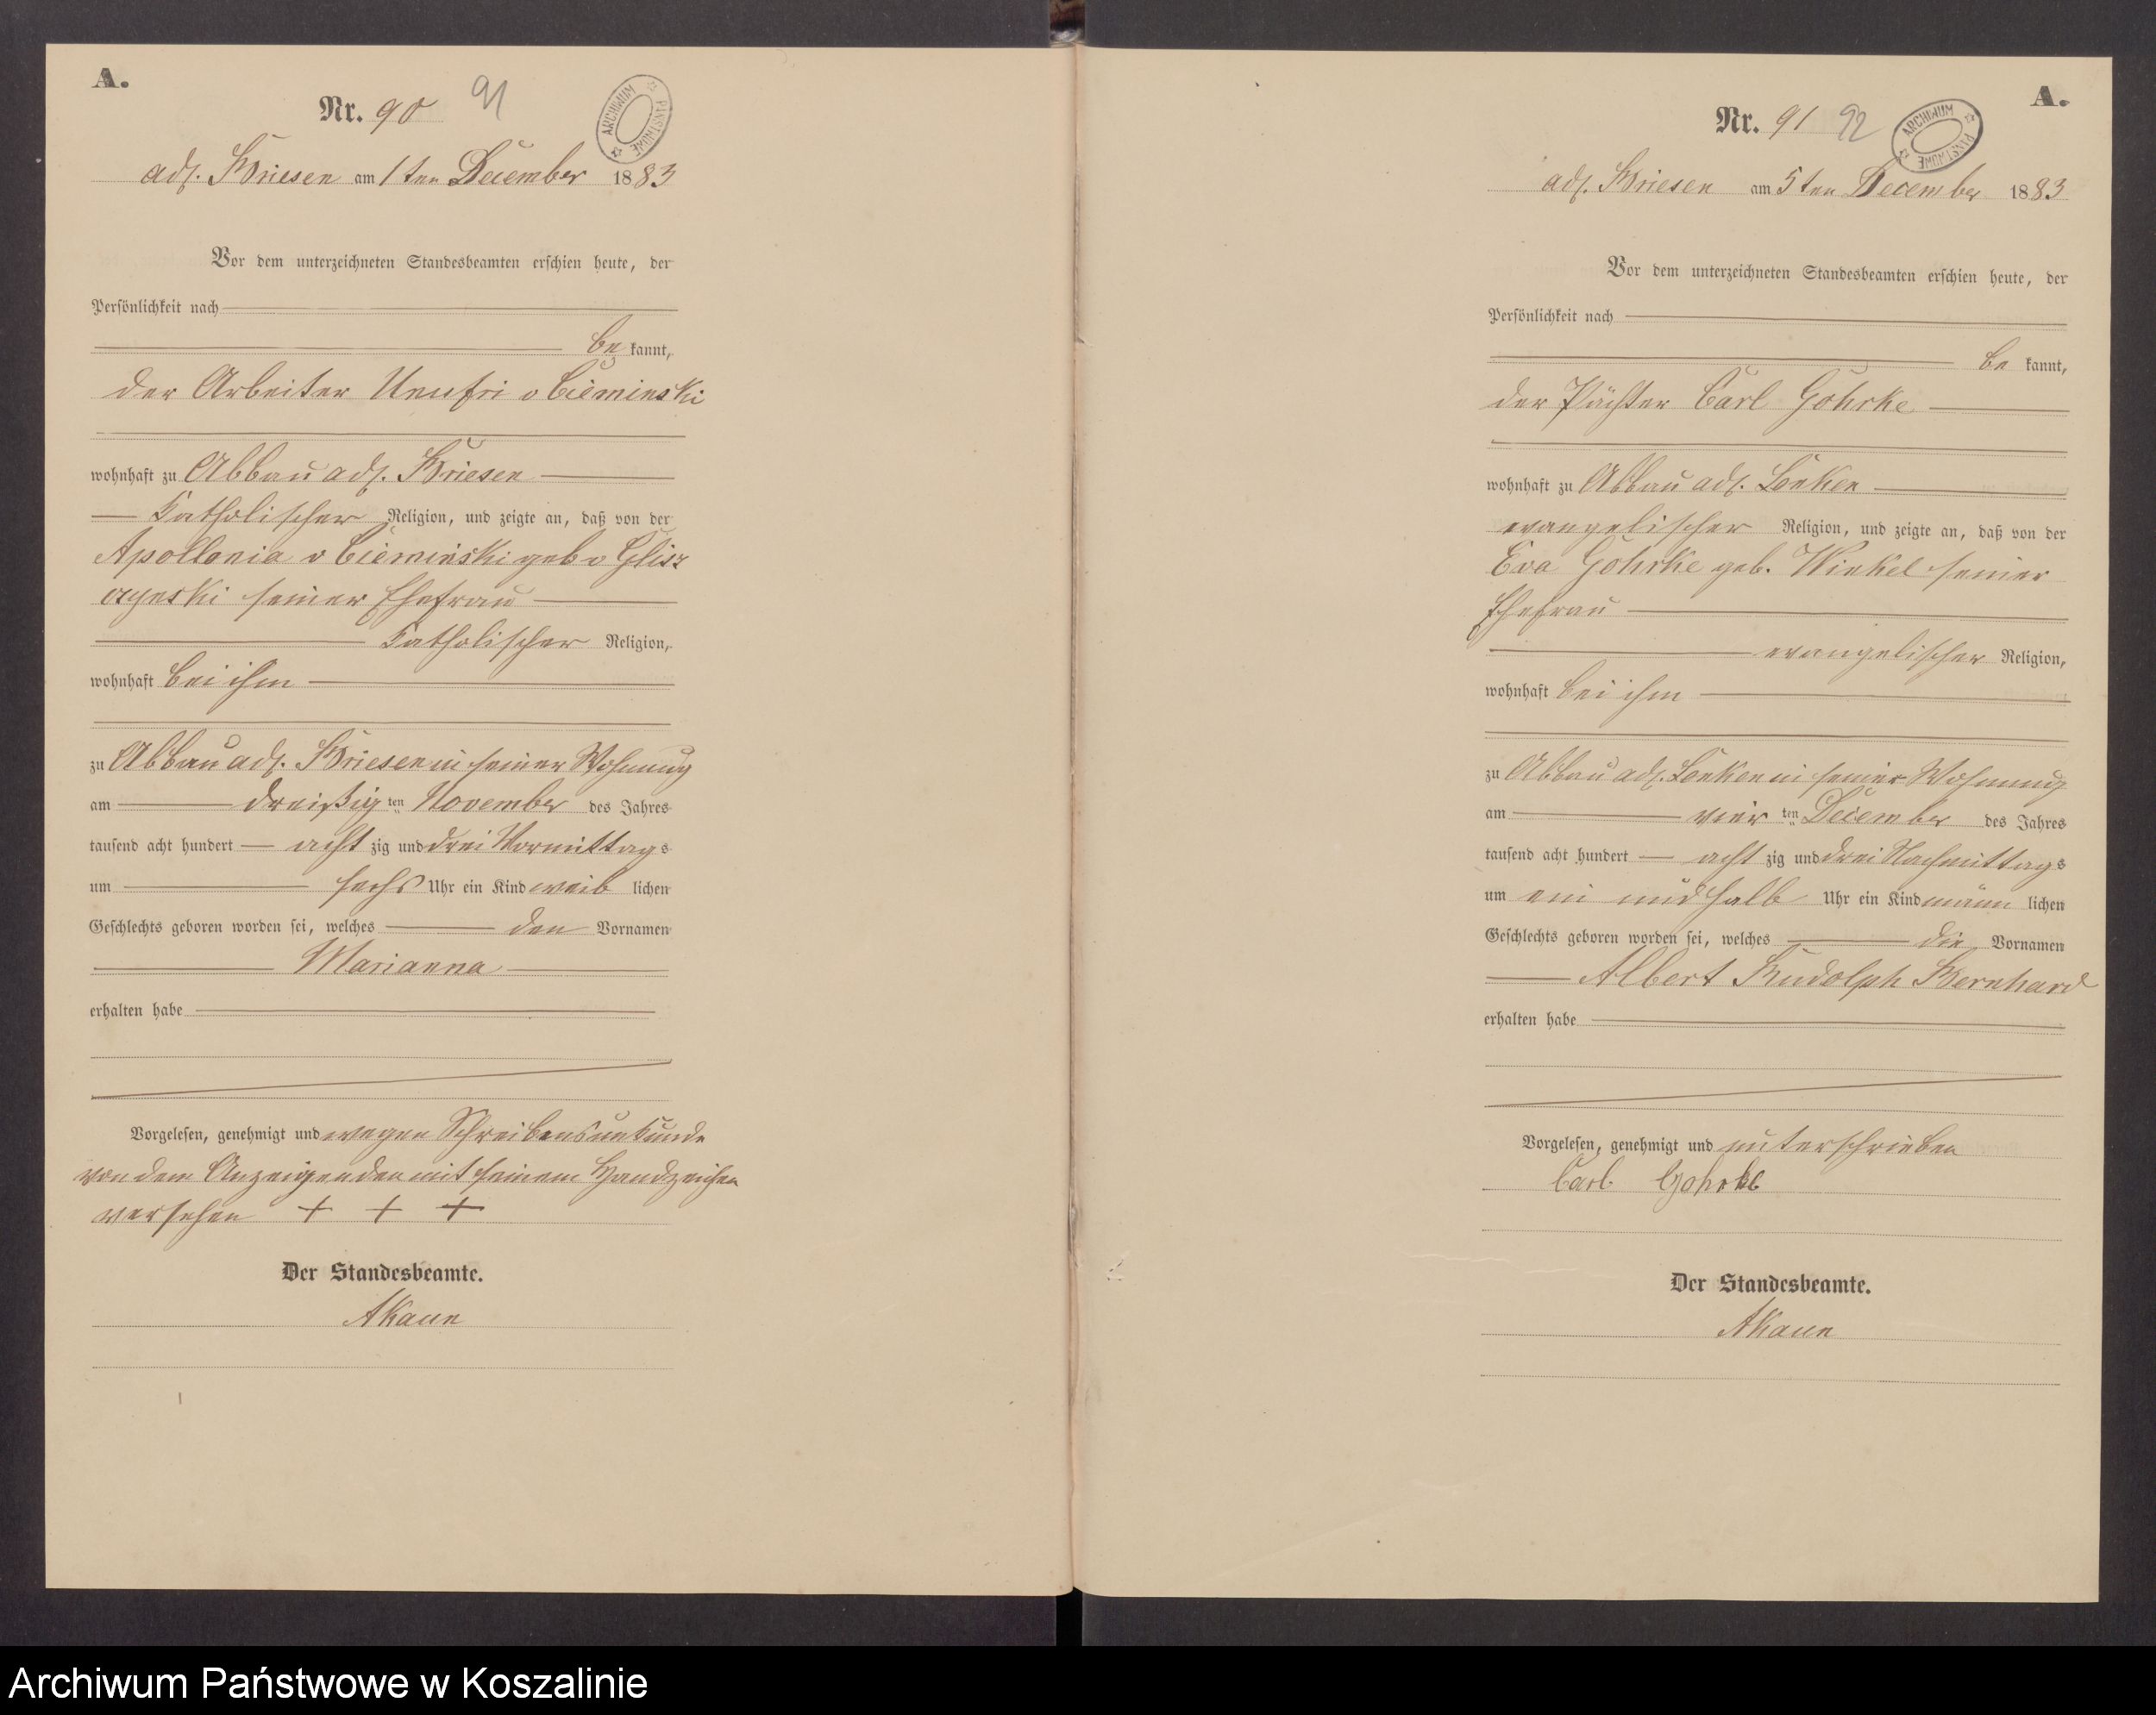 A.
Nr. 90 91
ARCHIWUM PAŃSTWOWE
adl. Briesen am 1ten December 1883
Vor dem unterzeichneten Standesbeamten erschien heute, der
Persönlichkeit nach
be kannt,
der Arbeiter Unufri v Cieminski
wohnhaft zu Abbau adl. Briesen
katholischer Religion, und zeigte an, daß von der
Apollonia v Cieminski geb v Glisz
czynski seiner Ehefrau
katholischer Religion,
wohnhaft bei ihm
zu Abbau adl. Briesen in seiner Wohnung
am dreißig ten November des Jahres
tausend acht hundert acht zig und drei Vormittags
um sechs Uhr ein Kind weib lichen
Geschlechts geboren worden sei, welches den Vornamen
Marianna
erhalten habe
Vorgelesen, genehmigt und wegen Schreibensunkunde
von dem Anzeigenden mit seinem Handzeichen
versehen + + +
Der Standesbeamte.
AKaun
A.
Nr. 91 92
ARCHIWUM PAŃSTWOWE
adl. Briesen am 5ten December 1883
Vor dem unterzeichneten Standesbeamten erschien heute, der
Persönlichkeit nach
be kannt,
der Pächter Carl Gohrke
wohnhaft zu Abbau adl. Lonken
evangelischer Religion, und zeigte an, daß von der
Eva Gohrke geb. Winkel seiner
Ehefrau
evangelischer Religion,
wohnhaft bei ihm
zu Abbau adl. Lonken in seiner Wohnung
am vier ten December des Jahres
tausend acht hundert acht zig und drei Nachmittags
um ein und halb Uhr ein Kind männ lichen
Geschlechts geboren worden sei, welches die Vornamen
Albert Rudolph Bernhard
erhalten habe
Vorgelesen, genehmigt und unterschrieben
Carl Gohrke
Der Standesbeamte.
AKaun
Archiwum Państwowe w Koszalinie